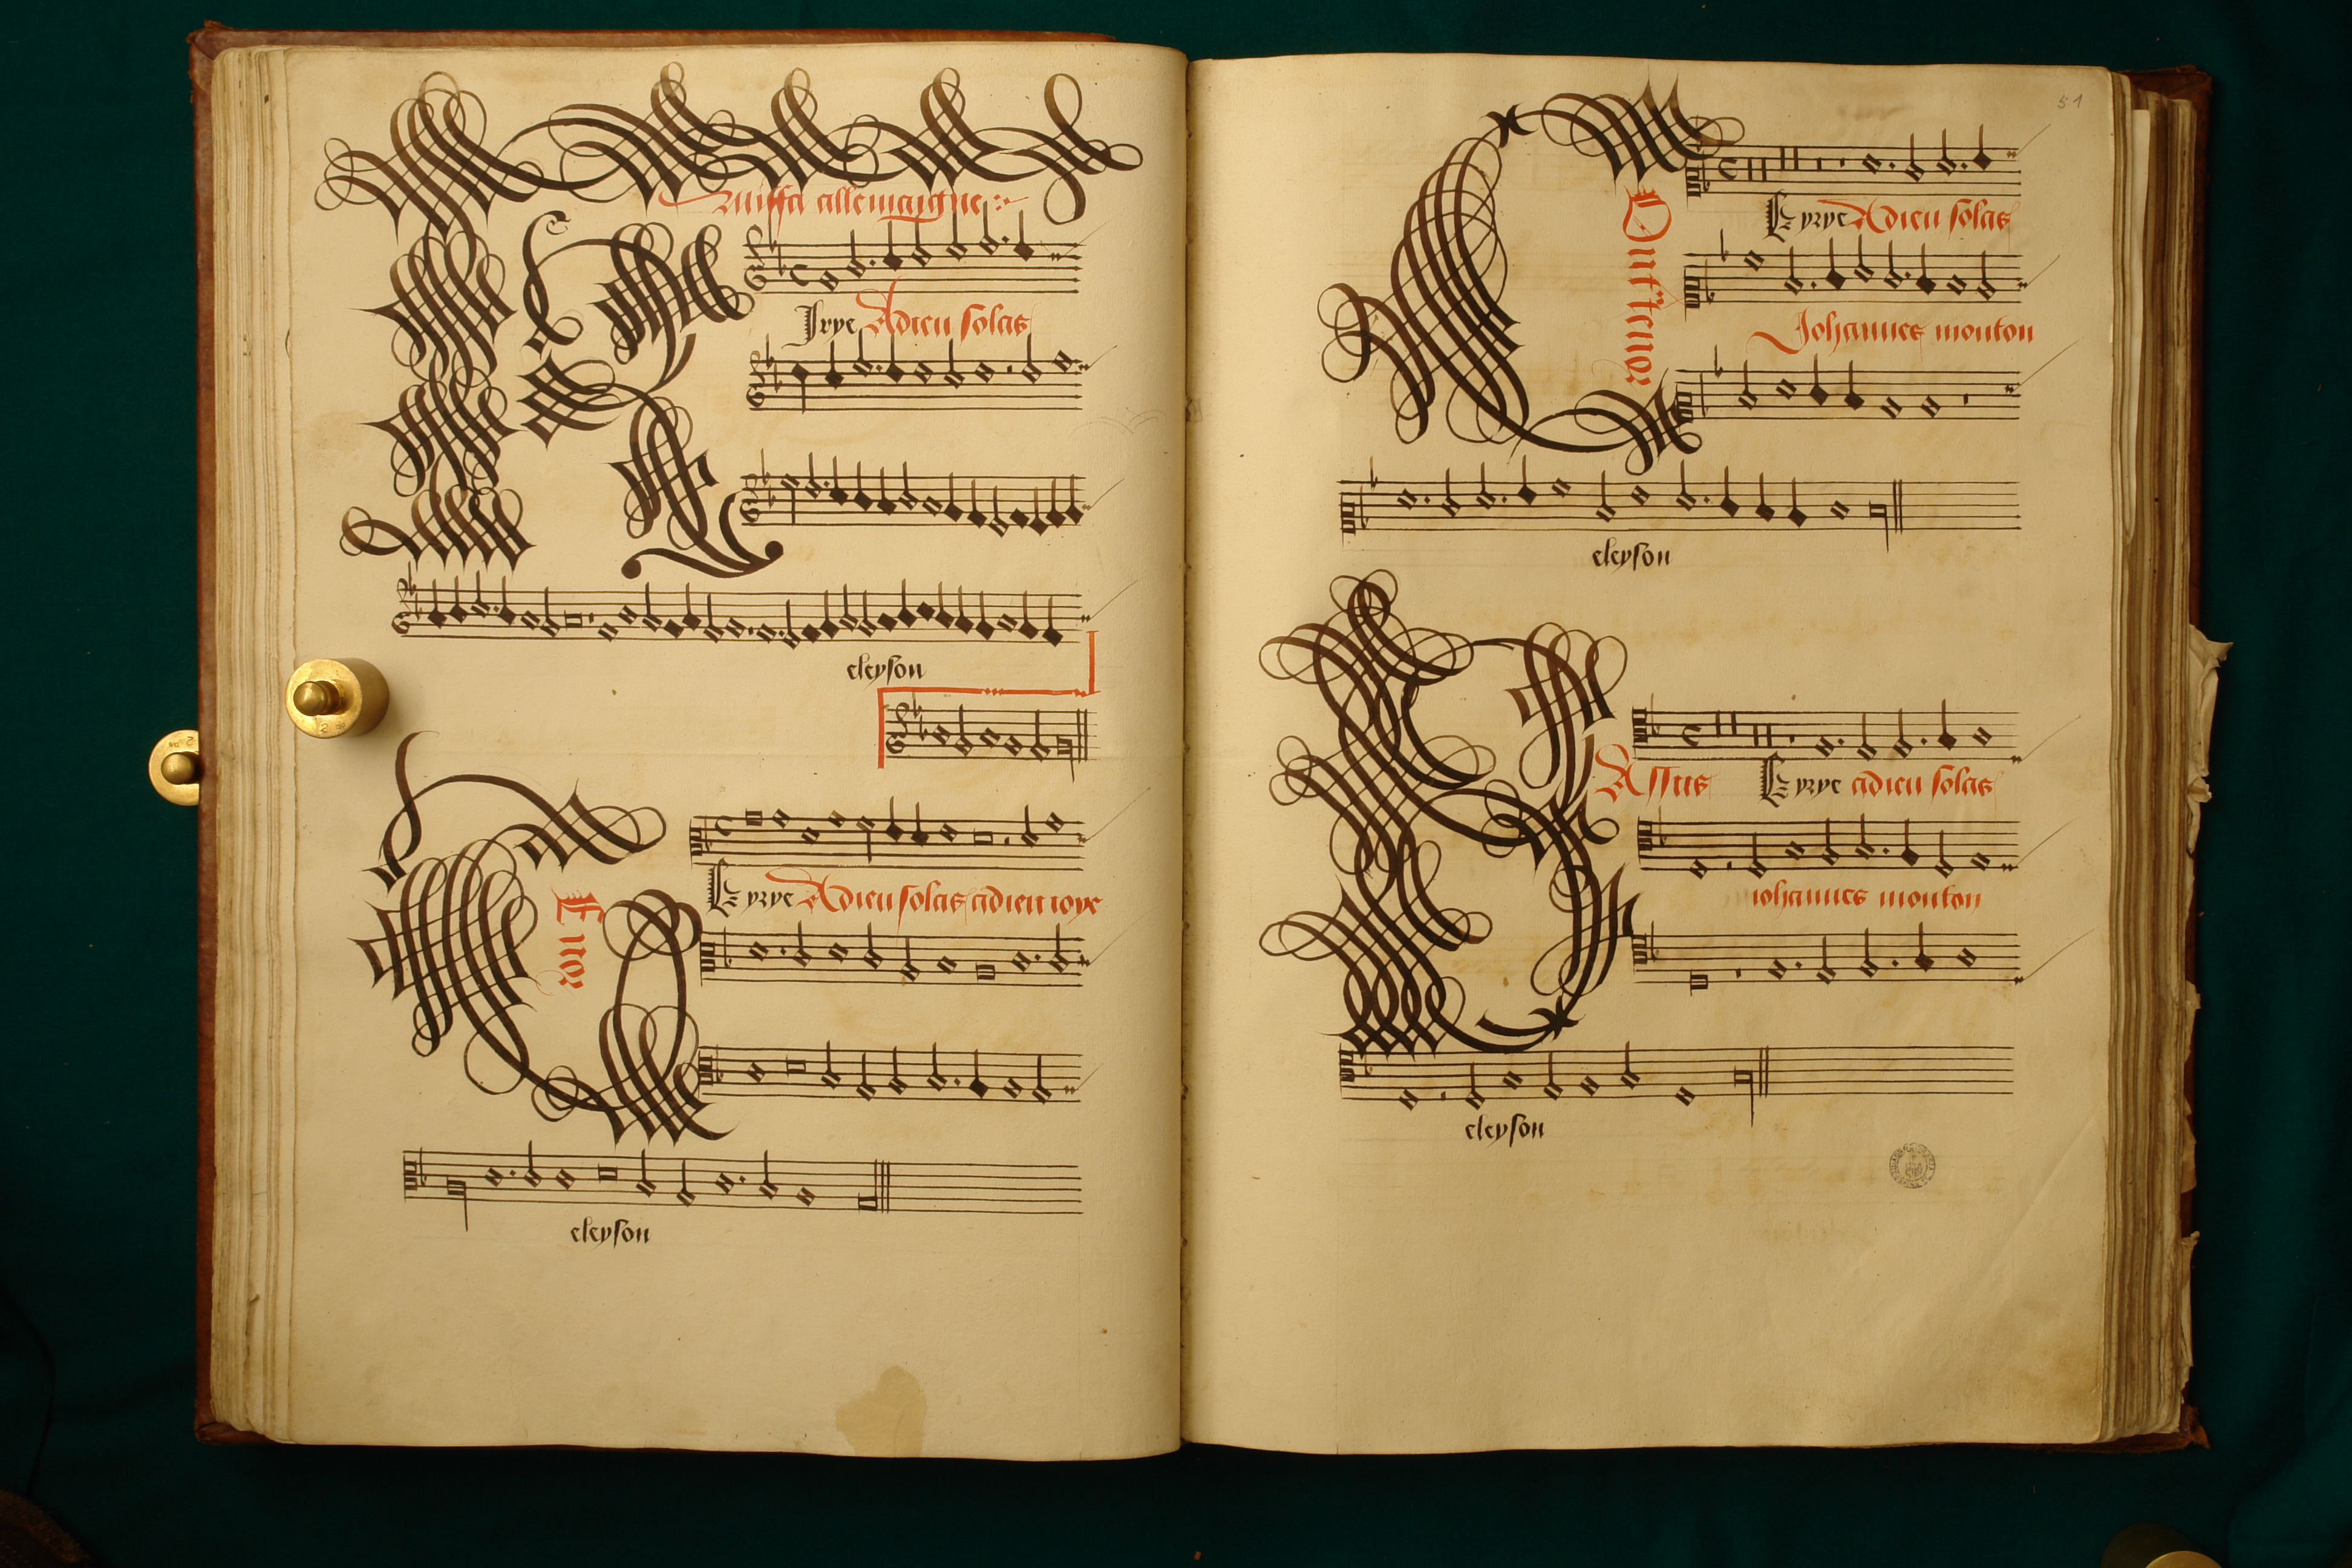 Missa allemaigne
Kyrye Adieu solas
eleyson
Tenor
Kyrye Adieu solas adieu ioye
eleyson
51
Contratenor
Kyrye Adieu solas
Johannes mouton
eleyson
Bassus
Kyrye adieu solas
iohannes mouton
eleyson